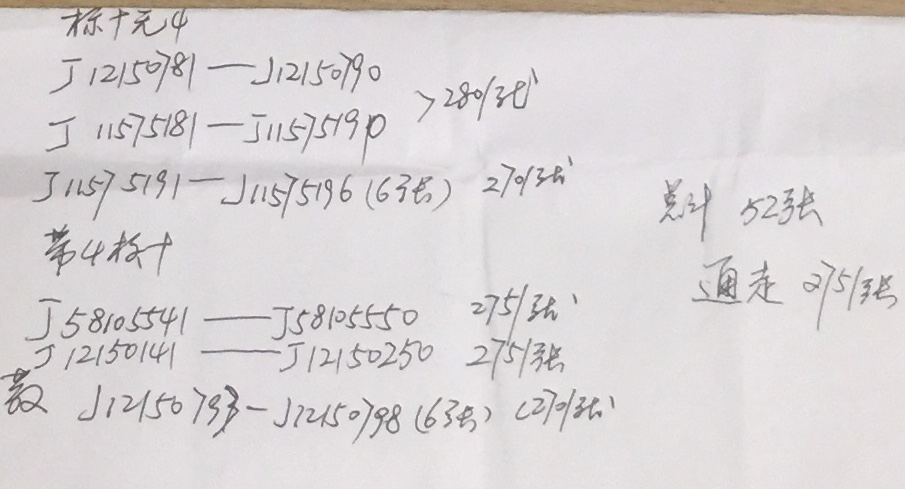 标十无4
J12150781—J12150790
>280/张
J11575181—J11575190
J11575191—J11575196(6张) 270/张
总计 52张
带4标十
通走 275/张
J58105541——J58105550 275/张
J12150141——J12150250 275/张
散 J12150793-J12150798(6张)(270/张